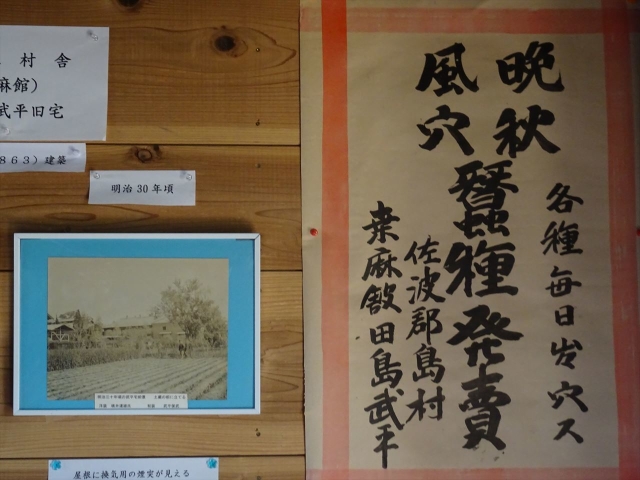 村舎
麻館)
武平旧宅
863)建築
明治30年頃
屋根に換気用の煙突が見える
各種毎日出穴ス
晩秋
風穴
蠶種発賣
佐波郡島村
桑麻舘田島武平